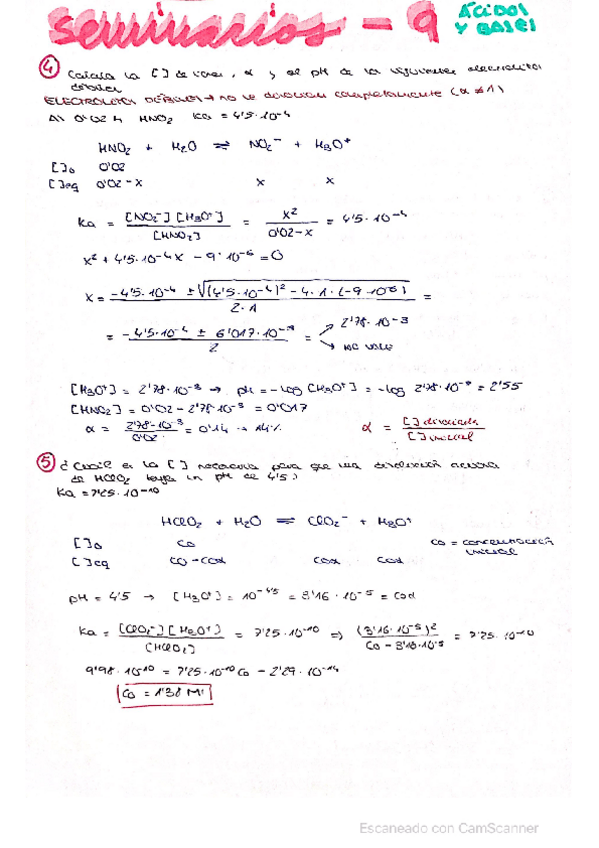 Seminarios - 9 ÁCIDOS Y BASES
④ Calcula la [ ] de iones, α y el pH de los siguientes electrolitos
débiles
ELECTROLITOS DÉBILES → no se disocian completamente (α ≠ 1)
A) 0'02 M HNO₂ Ka = 4'5·10⁻⁴
HNO₂ + H₂O ⇌ NO₂⁻ + H₃O⁺
[ ]₀ 0'02
[ ]eq 0'02-x x x
Ka = [NO₂⁻][H₃O⁺] / [HNO₂] = x² / 0'02-x = 4'5·10⁻⁴
x² + 4'5·10⁻⁴x - 9·10⁻⁶ = 0
x = -4'5·10⁻⁴ ± √((4'5·10⁻⁴)² - 4·1·(-9·10⁻⁶)) / 2·1 =
= -4'5·10⁻⁴ ± 6'017·10⁻³ / 2 = → 2'78·10⁻³
→ no vale
[H₃O⁺] = 2'78·10⁻³ → pH = -log [H₃O⁺] = -log 2'78·10⁻³ = 2'55
[HNO₂] = 0'02 - 2'78·10⁻³ = 0'017
α = 2'78·10⁻³ / 0'02 = 0'14 → 14% α = [ ] disociada / [ ] inicial
⑤ ¿Cuál es la [ ] necesaria para que una disolución acuosa
de HClO₂ tenga un pH de 4'5?
Ka = 7'25·10⁻¹⁰
HClO₂ + H₂O ⇌ ClO₂⁻ + H₃O⁺
[ ]₀ co co = concentración
inicial
[ ]eq co-coα coα coα
pH = 4'5 → [H₃O⁺] = 10⁻⁴'⁵ = 3'16·10⁻⁵ = coα
Ka = [ClO₂⁻][H₃O⁺] / [HClO₂] = 7'25·10⁻¹⁰ ⇒ (3'16·10⁻⁵)² / Co - 3'16·10⁻⁵ = 7'25·10⁻¹⁰
9'98·10⁻¹⁰ = 7'25·10⁻¹⁰ Co - 2'29·10⁻¹⁴
Co = 1'38 M
Escaneado con CamScanner